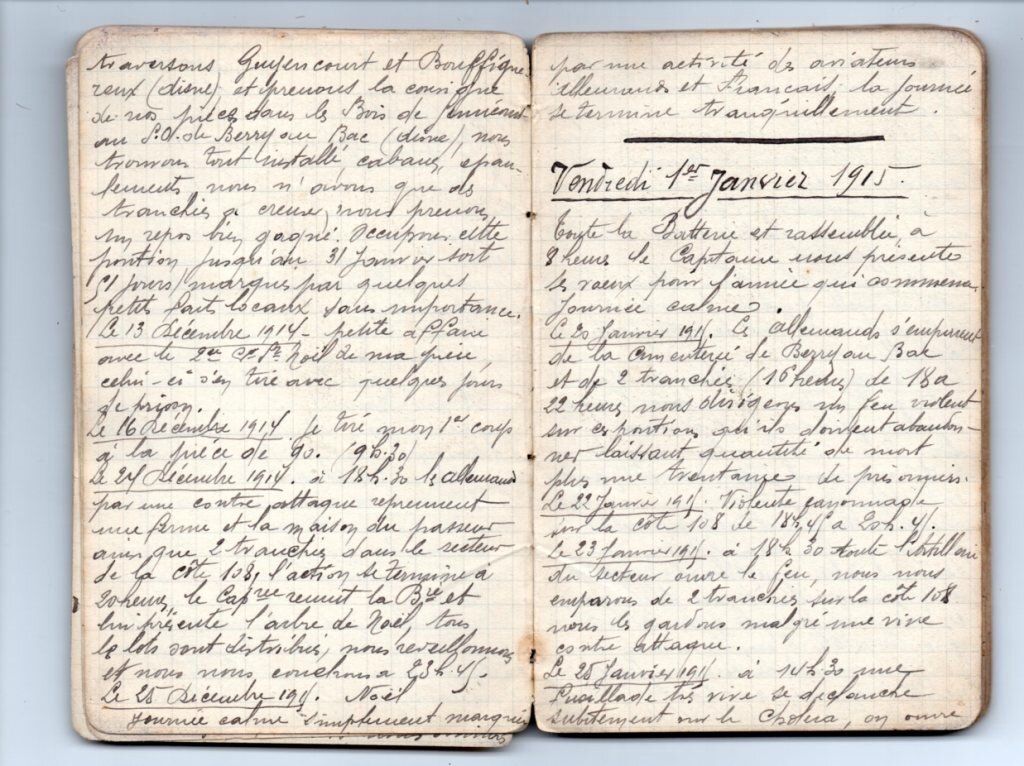 traversons Guyencourt et Bouffigne
reux (aisne) et prenons la consigne
de nos pièces dans les Bois de
au S.O. de Berry au Bac (aisne), nous
trouvons tout installé, cabanes, épau-
lements, nous n'avons que des
tranchées à creuser, nous prenons
un repos bien gagné. Occupons cette
position jusqu'au 31 Janvier soit
51 jours marqués par quelques
petits faits locaux sans importance.
Le 13 Décembre 1914 - petite affaire
avec le 2me Noël de ma pièce,
celui-ci s'en tire avec quelques jours
de prison.
Le 16 Décembre 1914. Je tire mon 1er coup
à la pièce de 90. (9h.30)
Le 24 Décembre 1914. à 18h.30 les allemands
par une contre attaque reprennent
une ferme et la maison du passeur
ainsi que 2 tranchées dans le secteur
de la côte 108, l'action se termine à
20 heures, le Capne réunit la Bie et
lui présente l'arbre de Noël, tous
les lots sont distribués, nous réveillonnons
et nous nous couchons à 23h.45.
Le 25 Décembre 191. Noël
Journée calme simplement marquée
par une activité des aviateurs
allemands et Francais, la journée
se termine tranquillement.
Vendredi 1er Janvier 1915.
Toute la Batterie est rassemblée à
8 heures le Capitaine nous présente
les vœux pour l'année qui commence.
Journée calme.
Le 20 Janvier 191. Les allemands s'emparent
de la Cimenterie de Berry au Bac
et de 2 tranchées (16 heures) de 18 à
22 heures nous dirigeons un feu violent
sur ces positions qu'ils doivent abandon-
ner laissant quantité de mort
plus une trentaine de prisonniers.
Le 22 Janvier 191. Violente canonnade
sur la côte 108 de 18h,45 à 20h.45.
Le 23 Janvier 191. à 18h 30 toute l'artillerie
du secteur ouvre le feu, nous nous
emparons de 2 tranchées sur la côte 108
nous les gardons malgré une vive
contre attaque.
Le 25 Janvier 191. à 14h.30 une
fusillade très vive se déclanche
subitement sur le Choléra, on ouvre